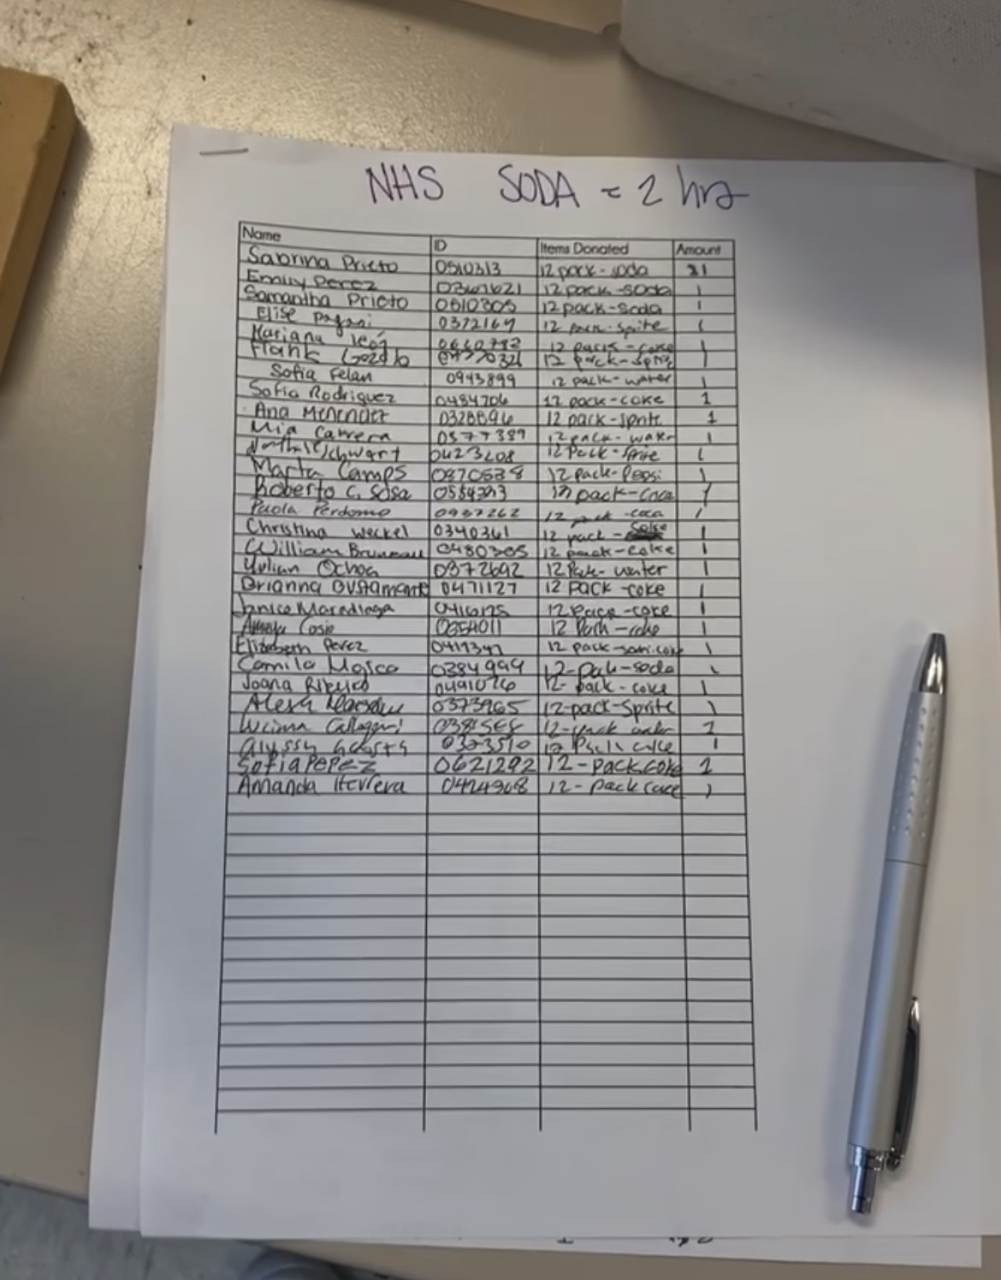 NHS SODA = 2 hrs
Name ID Items Donated Amount
Sabrina Prieto 0510313 12 pack-soda 1
Emily Perez 12 pack-soda 1
Samantha Prieto 0510305 12 pack-soda 1
Elise 0372169 12 pack-sprite 1
Mariana León 12 pack-coke 1
Frank 12 pack-sprite 1
Sofia Felan 0943899 12 pack-water 1
Sofia Rodriguez 0484706 12 pack-coke 1
Ana Menendez 12 pack-sprite 1
Mia Carrera 0577389 12 pack-water 1
0423208 12 Pack-
Marta Camps 0870538 12 pack-Pepsi 1
Roberto C. Sosa 12 pack-Coca 1
Paola Perdomo 0937262 12 pack-coca 1
Christina Weckel 0340361 12 pack- 1
William Bruneau 0480305 12 pack-coke 1
Yulian Ochoa 0372692 12 Pack-water 1
Brianna Bustamante 0471127 12 PACK-coke 1
Janice Maradiaga 12 Pack-coke 1
0354011 12 Pack-coke 1
Elizabeth Perez 12 pack- 1
Camila Mojica 0384999 12-Pack-soda
Joana 12-pack-coke 1
Alexa 0373965 12-pack-Sprite 1
12-pack
Alyssa Acosta 0373510 12 Pack 1
Sofia Perez 0621292 12-pack coke 1
Amanda Herrera 0424908 12-pack 1